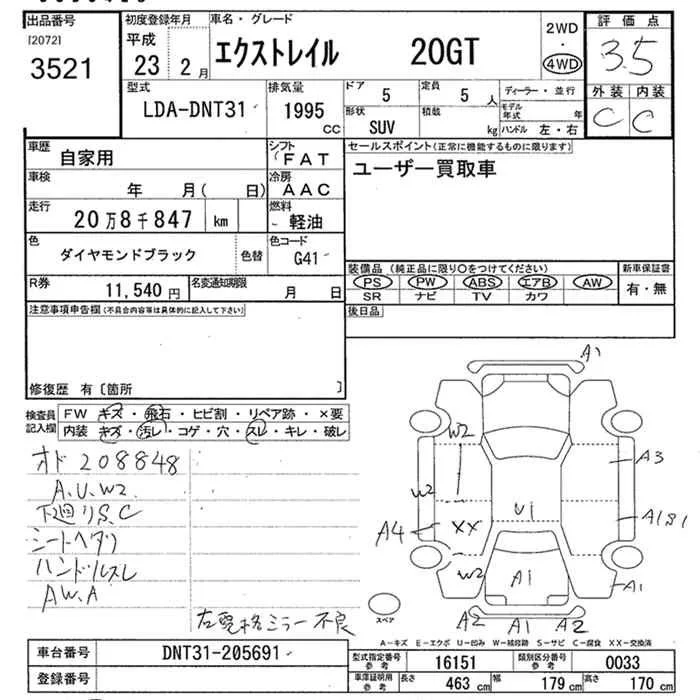 出品番号 初度登録年月 車名・グレード 2WD 評価点
[2072] 平成 エクストレイル 20GT ・ 3.5
3521 23 2月 4WD 外装 内装
型式 排気量 ドア 5 定員 5人 ディーラー・並行 C C
LDA-DNT31 1995 CC 形状 SUV 積載 kg モデル年式 年
ハンドル 左・右
車歴 自家用 シフト FAT セールスポイント(正常に機能するものに限ります)
車検 年 月( 日) 冷房 AAC ユーザー買取車
走行 20万8千847 km 燃料 軽油
色 ダイヤモンドブラック 色替 色コード G41
R券 11,540円 名変通知期限 月 日
装備品(純正品に限り○をつけてください) 新車保証書
PS PW ABS エアB AW 有・無
SR ナビ TV カワ
注意事項申告欄(不具合内容等は具体的に記入して下さい) 後日品
修復歴 有〔箇所 〕
検査員記入欄 FW キズ・飛石・ヒビ割・リペア跡・×要
内装 キズ・汚レ・コゲ・穴・スレ・キレ・破レ
オド 208848
A.U.W2
下廻リS.C
シートヘタリ
ハンドルスレ
AW.A
左電格ミラー不良
A1
W2
A3
W2
U1
A1S1
A4
XX
W2
A1
A1
A2 A1 A2
スペア
A-キズ E-エクボ U-凹み W-補修跡 S-サビ C-腐食 XX-交換済
車台番号 DNT31-205691 型式指定番号 参考 16151 類別区分番号 参考 0033
登録番号 車庫証明用 参考 長さ 463cm 幅 179cm 高さ 170cm